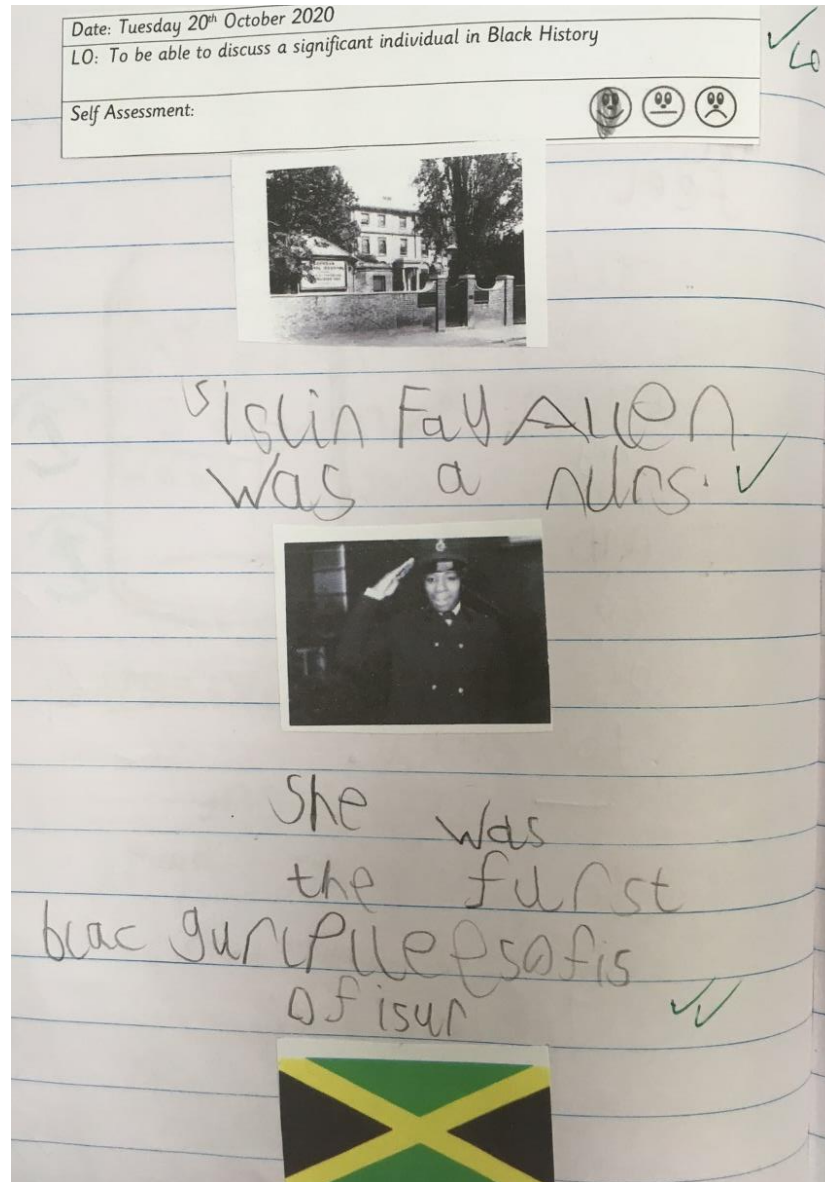 Date: Tuesday 20th October 2020
LO: To be able to discuss a significant individual in Black History
LO
Self Assessment:
sislin Fay Allen
was a nurs.
She was
the furst
blac gurl
of isur